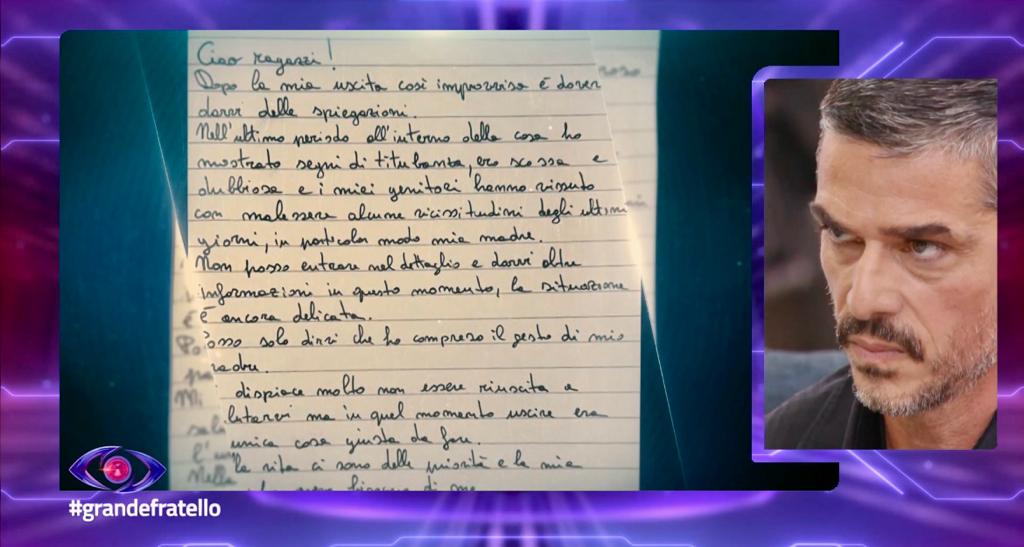 Ciao ragazzi!
Dopo la mia uscita così improvvisa è dover
darvi delle spiegazioni.
Nell'ultimo periodo all'interno della casa ho
mostrato segni di titubanza, ero scossa e
dubbiosa e i miei genitori hanno vissuto
con malessere alcune vicissitudini degli ultimi
giorni, in particolar modo mia madre.
Non posso entrare nel dettaglio e darvi altre
informazioni in questo momento, la situazione
è ancora delicata.
Posso solo dirvi che ho compreso il gesto di mio
padre.
Mi dispiace molto non essere riuscita a
lutarvi ma in quel momento uscire era
l'unica cosa giusta da fare.
Nella vita ci sono delle priorità e la mia
di me
#grandefratello